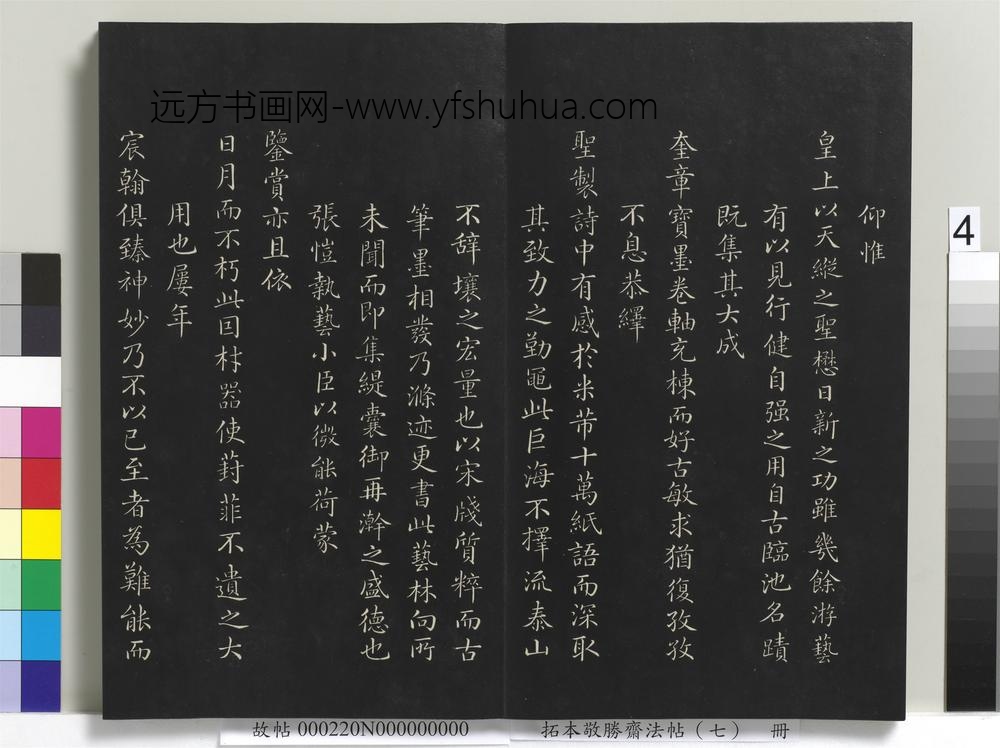 远方书画网-www.yfshuhua.com
仰惟
皇上以天縱之聖懋日新之功雖幾餘游藝
有以見行健自强之用自古臨池名蹟
既集其大成
奎章寶墨卷軸充棟而好古敏求猶復孜孜
不息恭繹
聖製詩中有感於米芾十萬紙語而深取
其致力之勤黽此巨海不擇流泰山
不辞壤之宏量也以宋牋質粹而古
筆墨相發乃滌迹更書此藝林向所
未聞而即集緹囊御再澣之盛德也
張愷執藝小臣以微能荷蒙
鑒賞亦且依
日月而不朽此因材器使葑菲不遺之大
用也屢年
宸翰俱臻神妙乃不以已至者為難能而
4
故帖 000220N000000000
拓本敬勝齋法帖（七） 冊